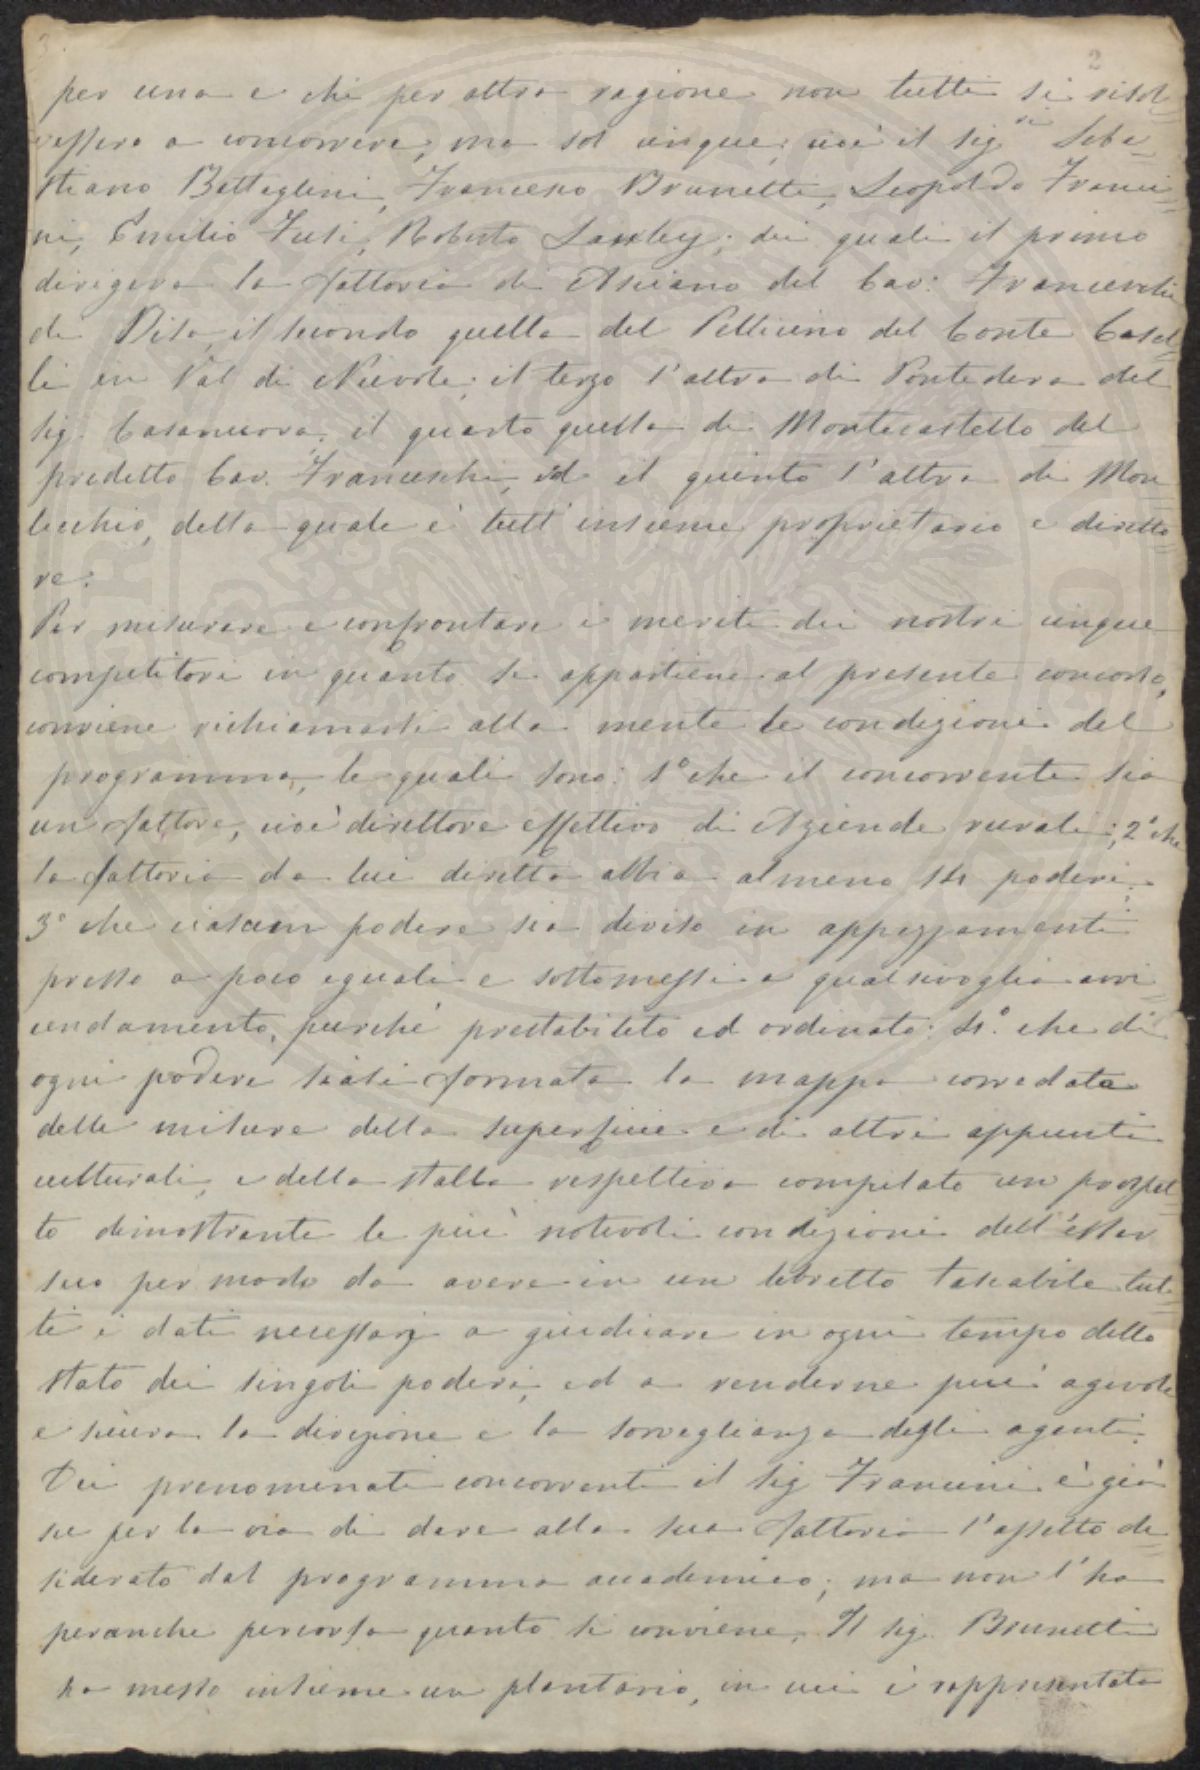 2
per una e chi per altra ragione non tutti si risol
vessero a concorrere; ma sol cinque; cioè il Sigri Seba-
stiano Battaglini, Francesco Brunetti, Leopoldo Franci-
ni, Emilio Fusi, Roberto Lawley; dei quali il primo
dirigeva la fattoria di Asciano del Cav: Franceschi
di Pisa, il secondo quella del Pellicino del Conte Casel-
li in Val di Nievole; il terzo l'altra di Pontedera del
sig. Casanuova; il quarto quella di Montecastello del
predetto Cav. Franceschi, ed il quinto l'altra di Mon
tecchio, della quale è tutt'insieme proprietario e diretto
re.
Per misurare e confrontare i meriti dei nostri cinque
competitori in quanto si appartiene al presente concorso,
conviene richiamarsi alla mente le condizioni del
programma, le quali sono: 1° che il concorrente sia
un fattore, cioè direttore effettivo di Aziende rurali; 2° che
la fattoria da lui diretta abbia almeno sei poderi;
3° che ciascun podere sia diviso in appezzamenti
presso a poco eguali e sottomessi a qualsivoglia avvi
cendamento, purchè prestabilito ed ordinato: 4°. che di
ogni podere siasi formata la mappa corredata
delle misure della superficie e di altri appunti
culturali, e della stalla respettiva compilato un prospet
to dimostrante le più notevoli condizioni dell'esser
suo per modo da avere in un libretto tascabile tut-
ti i dati necessarj a giudicare in ogni tempo dello
stato dei singoli poderi, ed a renderne più agevole
e sicura la direzione e la sorveglianza degli agenti.
Dei prenominati concorrenti il sig Francini è già
su per la via di dare alla sua fattoria l'assetto de
siderato dal programma accademico; ma non l'ha
peranche percorsa quanto si conviene. Il sig. Brunetti
ha messo insieme un plantario, in cui è rappresentata